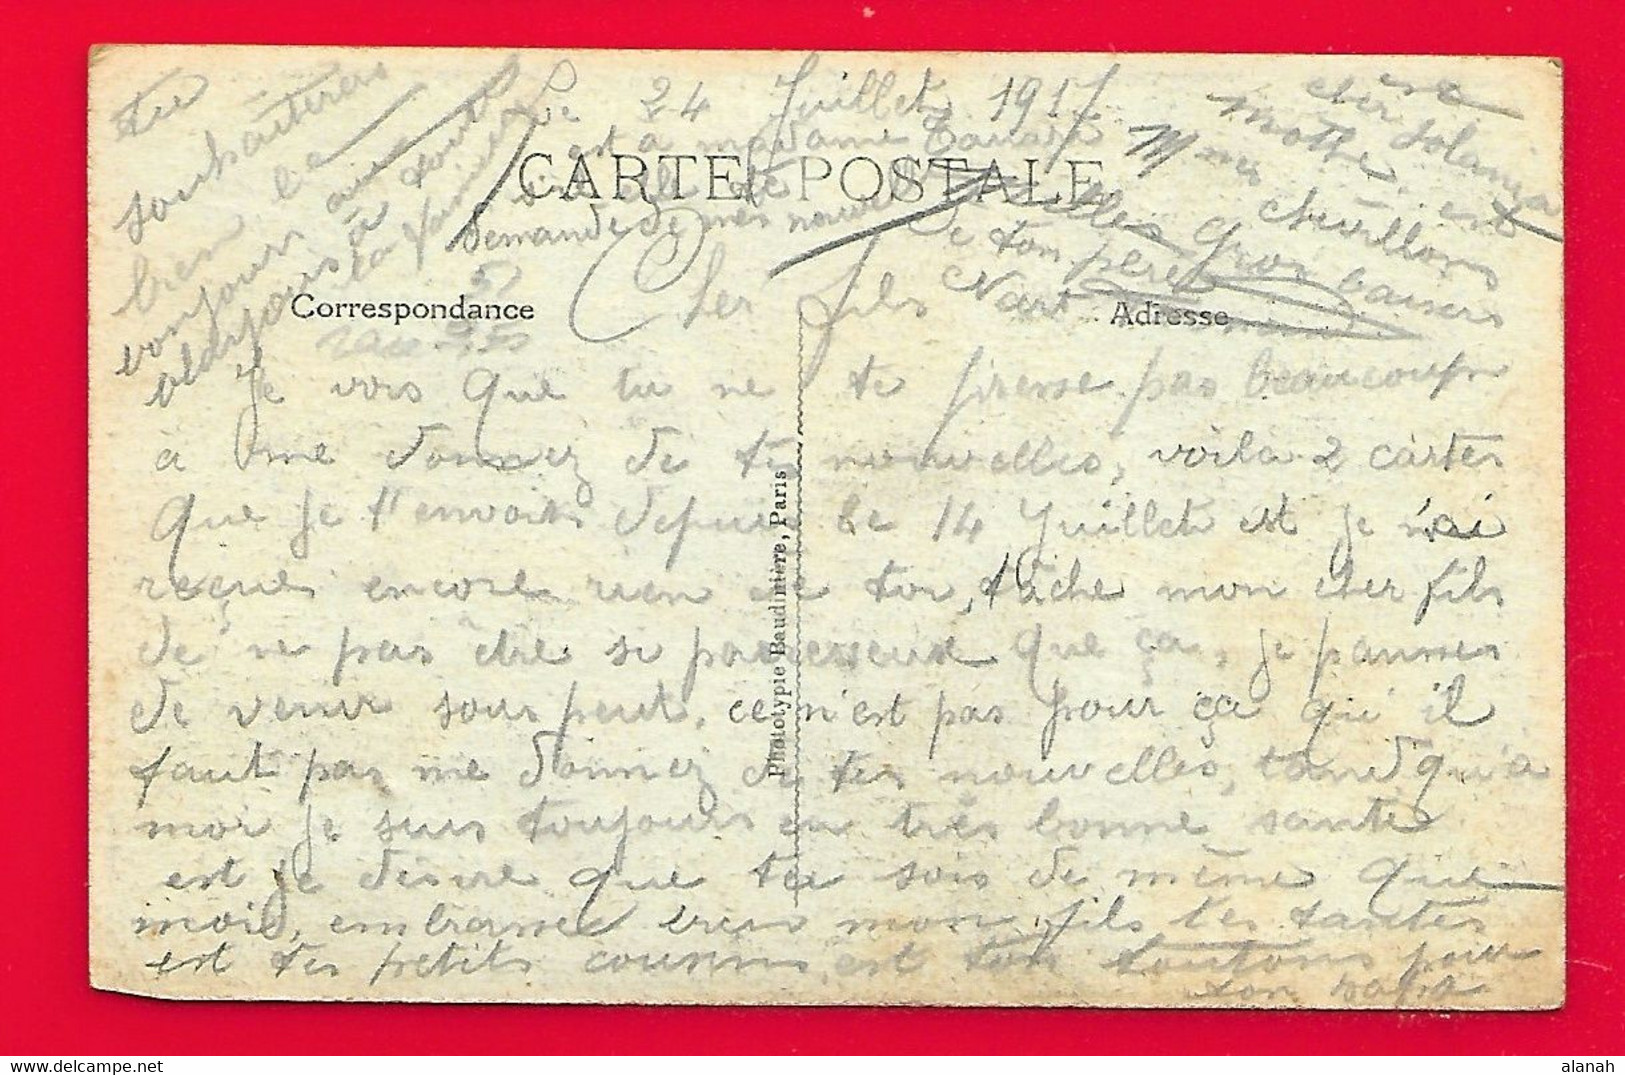 Le 24 Juillet 1917
CARTE POSTALE
Correspondance
Adresse
Phototypie Baudinière, Paris
Cher fils
Je vois que tu ne te presse pas beaucoup
à me donnez de tes nouvelles, voila 2 cartes
que je t'envois depuis le 14 Juillet est je n'ai
reçue encore rien de toi, tâche mon cher fils
de ne pas être si paresseux que ça, je
de venir sous peut, ce n'est pas pour ça qu'il
faut pas me donnez de tes nouvelles, tand qu'à
moi je suis toujours en très bonne santé
est je désire que tu sois de même que
moi, embrasse bien mon fils tes tantes
est tes petits cousins est ton tonton pour
ton papa
tu
souhaiteras
bien le
bonjour au
à toute
la famille
est à madame
demande de mes nouvelles
mille gros baisers
de ton père
alanah